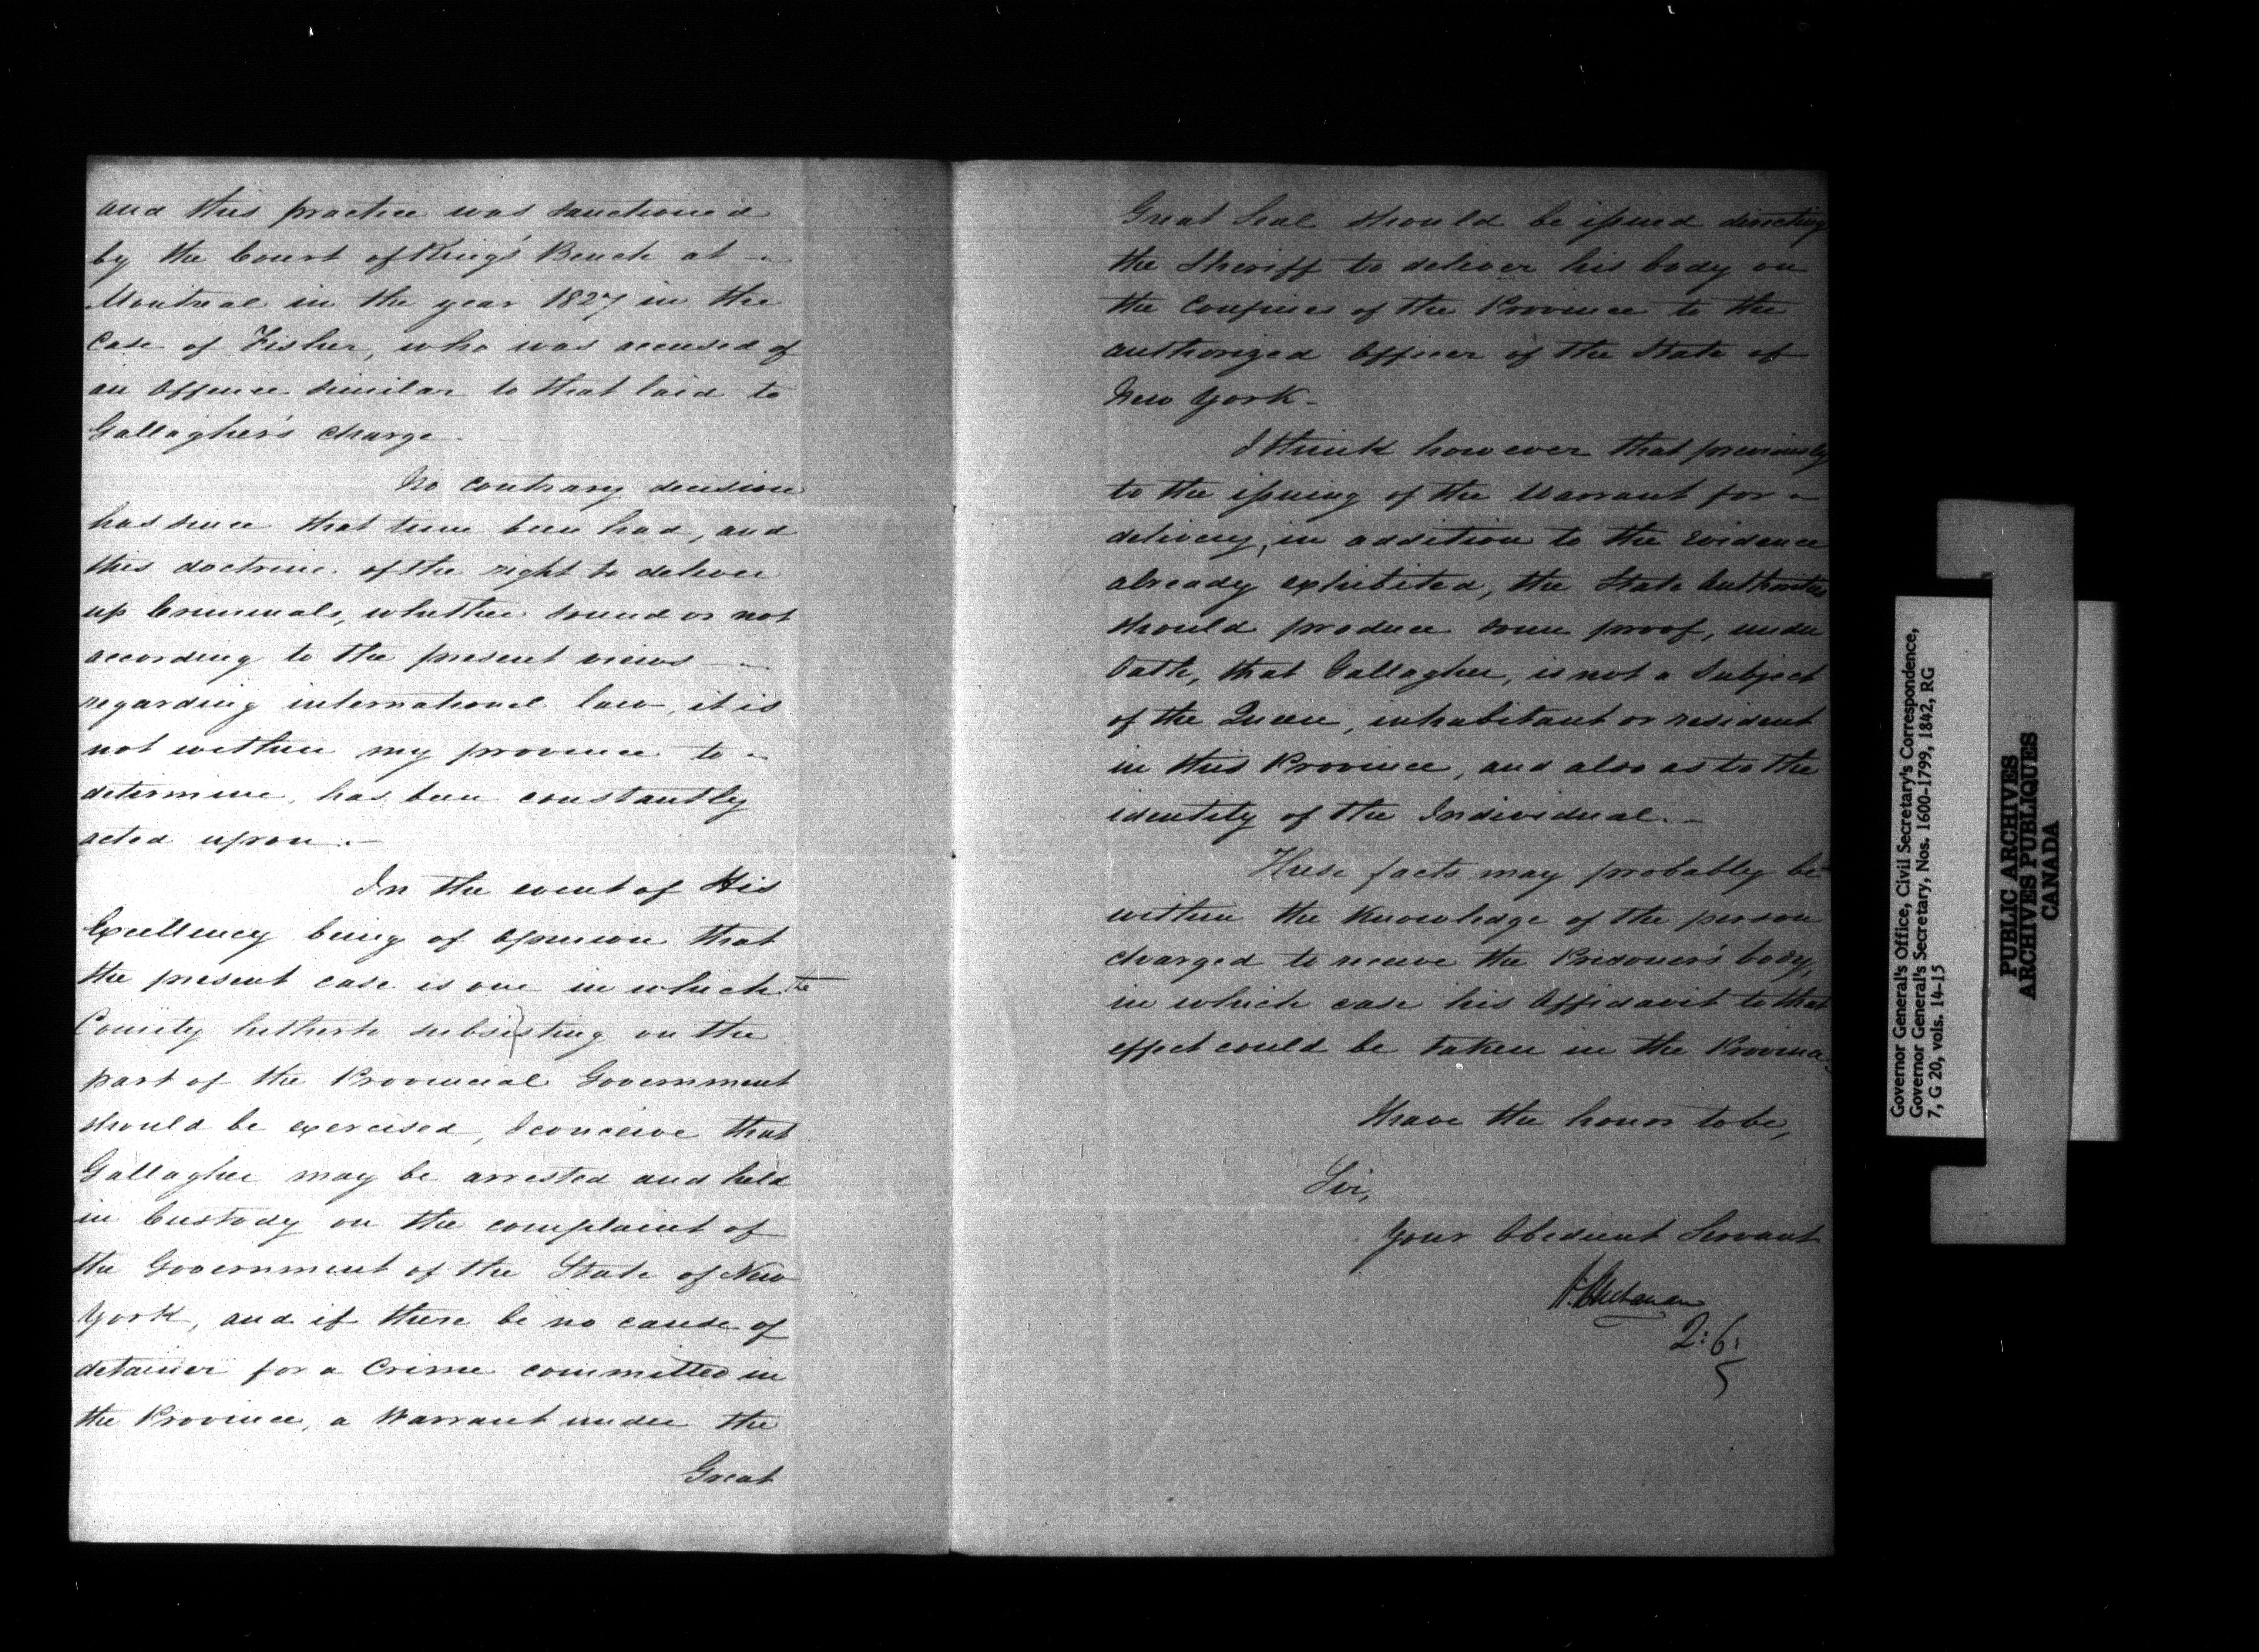 and this practice was sanctioned
by the Court of King's Bench at -
Montreal in the year 1827 in the
Case of Fisher, who was accused of
an Offence similar to that laid to
Gallagher's charge.
No contrary decision
has since that time been had, and
this doctrine of the right to deliver
up Criminals, whether sound or not
according to the present views -
regarding international law, it is
not within my province to -
determine, has been constantly
acted upon. -
In the event of His
Excellency being of opinion that
the present case is one in which the
Comity hitherto subsisting on the
part of the Provincial Government
should be exercised, I conceive that
Gallagher may be arrested and held
in Custody on the complaint of
the Government of the State of New
York, and if there be no cause of
detainer for a Crime committed in
the Province, a Warrant under the
Great
Great Seal should be issued directing
the Sheriff to deliver his body on
the Confines of the Province to the
authorized Officer of the State of
New York -
I think however that previously
to the issuing of the Warrant for -
delivery, in addition to the evidence
already exhibited, the State Authorities
should produce some proof, under
Oath, that Gallagher, is not a Subject
of the Queen, inhabitant or resident
in this Province, and also as to the
identity of the Individual. -
These facts may probably be
within the Knowledge of the person
charged to receive the Prisoner's body,
in which case his Affidavit to that
effect could be taken in the Province.
I have the honor to be,
Sir,
Your Obedient Servant
2:6:
5
Governor General's Office, Civil Secretary's Correspondence,
Governor General's Secretary, Nos. 1600-1799, 1842, RG
7, G 20, vols. 14-15
PUBLIC ARCHIVES
ARCHIVES PUBLIQUES
CANADA